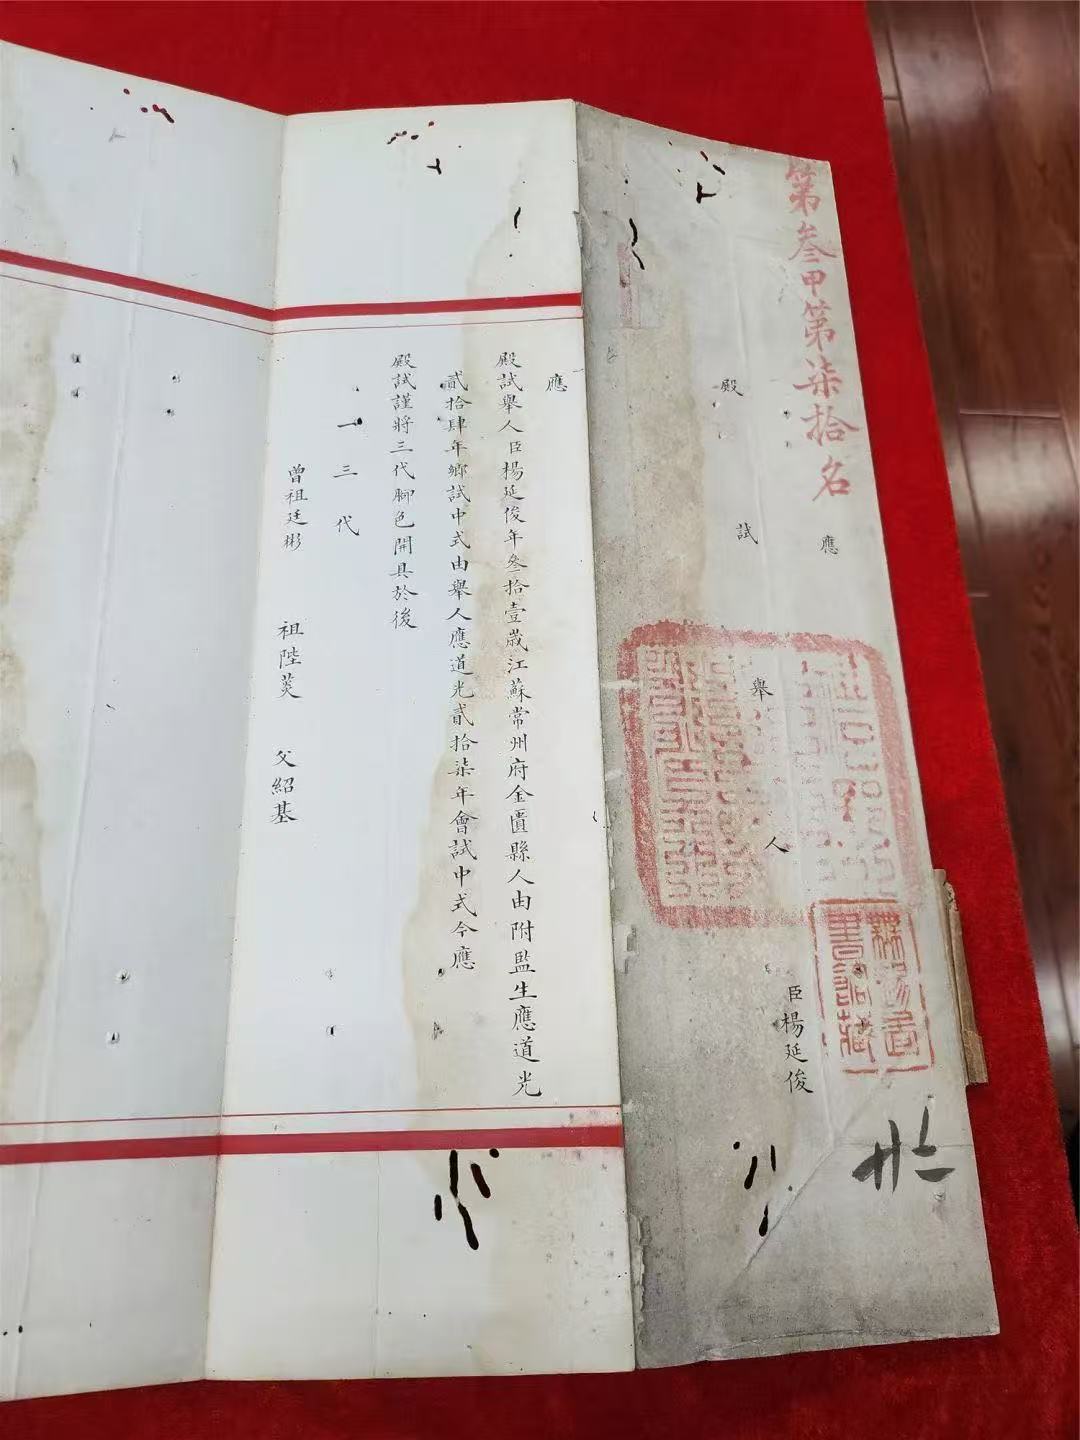 第叁甲第柒拾名
應
殿試舉人臣楊延俊
應
殿試舉人臣楊延俊年叁拾壹歲江蘇常州府金匱縣人由附監生應道光
貳拾肆年鄉試中式由舉人應道光貳拾柒年會試中式今應
殿試謹將三代腳色開具於後
一三代
曾祖廷彬 祖陛荚 父紹基